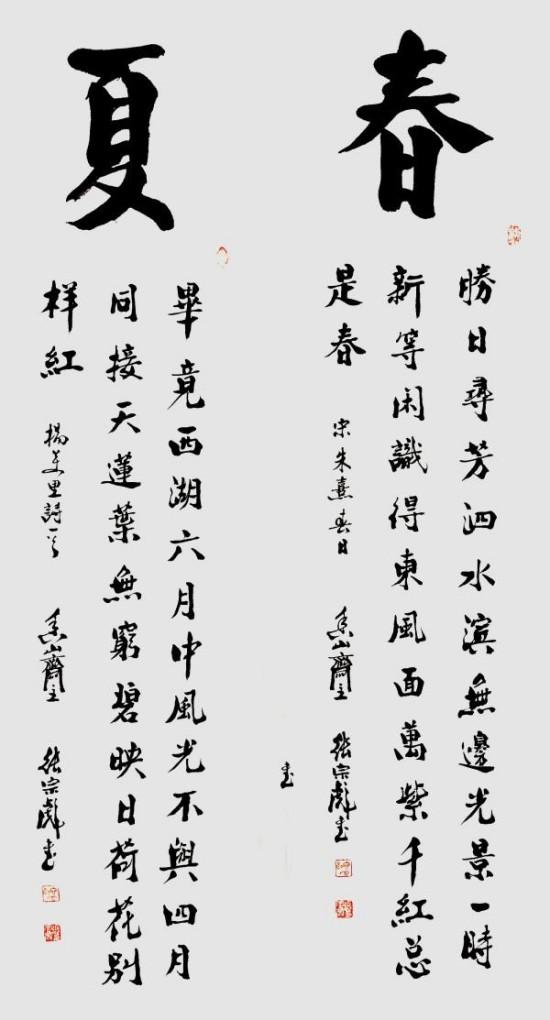 春
勝日尋芳泗水滨無邊光景一時
新等闲識得東風面萬紫千紅总
是春 宋朱熹春日 山齋主 张宗彪书
书
夏
畢竟西湖六月中風光不與四月
同接天蓮葉無窮碧映日荷花别
样紅 楊萬里詩一首 山齋主 张宗彪书